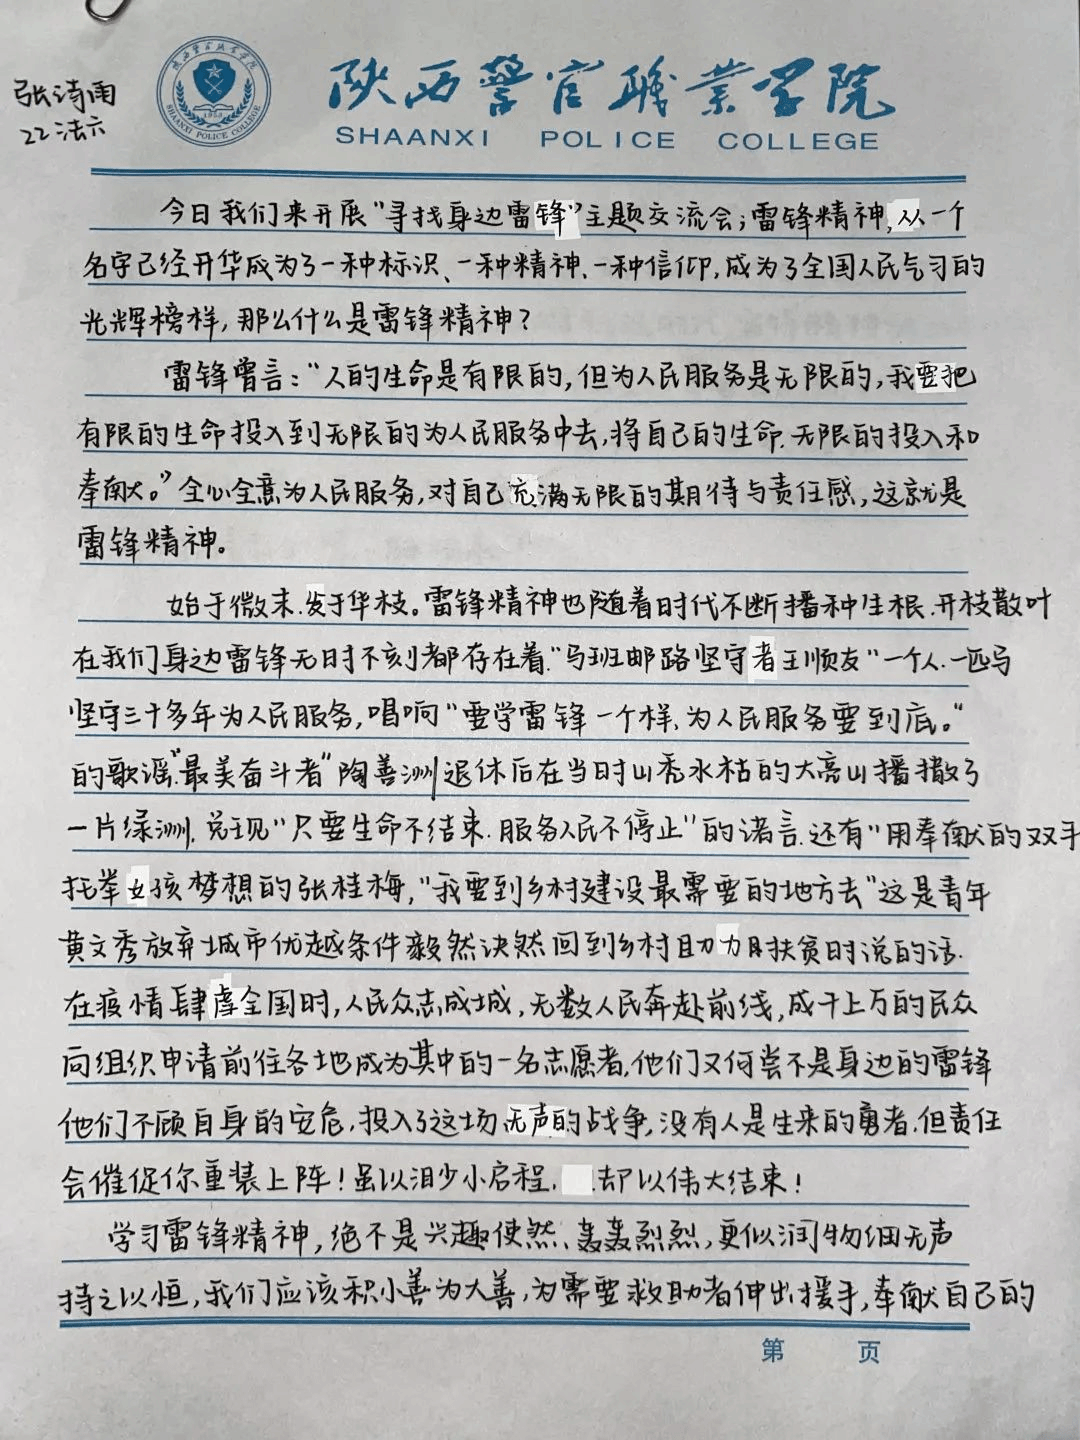 张诗雨
22法六
陕西警官职业学院
SHAANXI POLICE COLLEGE
陕西警官职业学院
SHAANXI POLICE COLLEGE
今日我们来开展“寻找身边雷锋”主题交流会；雷锋精神,从一个
名字已经升华成为了一种标识、一种精神、一种信仰,成为了全国人民学习的
光辉榜样,那么什么是雷锋精神？
雷锋曾言：“人的生命是有限的,但为人民服务是无限的,我要把
有限的生命投入到无限的为人民服务中去,将自己的生命.无限的投入和
奉献。”全心全意为人民服务,对自己充满无限的期待与责任感,这就是
雷锋精神。
始于微末.发于华枝。雷锋精神也随着时代不断播种生根.开枝散叶
在我们身边雷锋无时不刻都存在着.“马班邮路坚守者王顺友“一个人.一匹马
坚守三十多年为人民服务,唱响“要学雷锋一个样,为人民服务要到底。“
的歌谣.“最美奋斗者”陶善洲退休后在当时山秃水枯的大亮山播撒了
一片绿洲.兑现“只要生命不结束.服务人民不停止”的诺言.还有“用奉献的双手
托举女孩梦想的张桂梅,“我要到乡村建设最需要的地方去“这是青年
黄文秀放弃城市优越条件毅然决然回到乡村助力脱扶贫时说的话.
在疫情肆虐全国时,人民众志成城,无数人民奔赴前线,成千上万的民众
向组织申请前往各地成为其中的一名志愿者,他们又何尝不是身边的雷锋
他们不顾自身的安危,投入了这场无声的战争,没有人是生来的勇者.但责任
会催促你重装上阵！虽以泪少小启程. .却以伟大结束！
学习雷锋精神,绝不是兴趣使然、轰轰烈烈,更似润物细无声
持之以恒,我们应该积小善为大善,为需要救助者伸出援手,奉献自己的
第 页